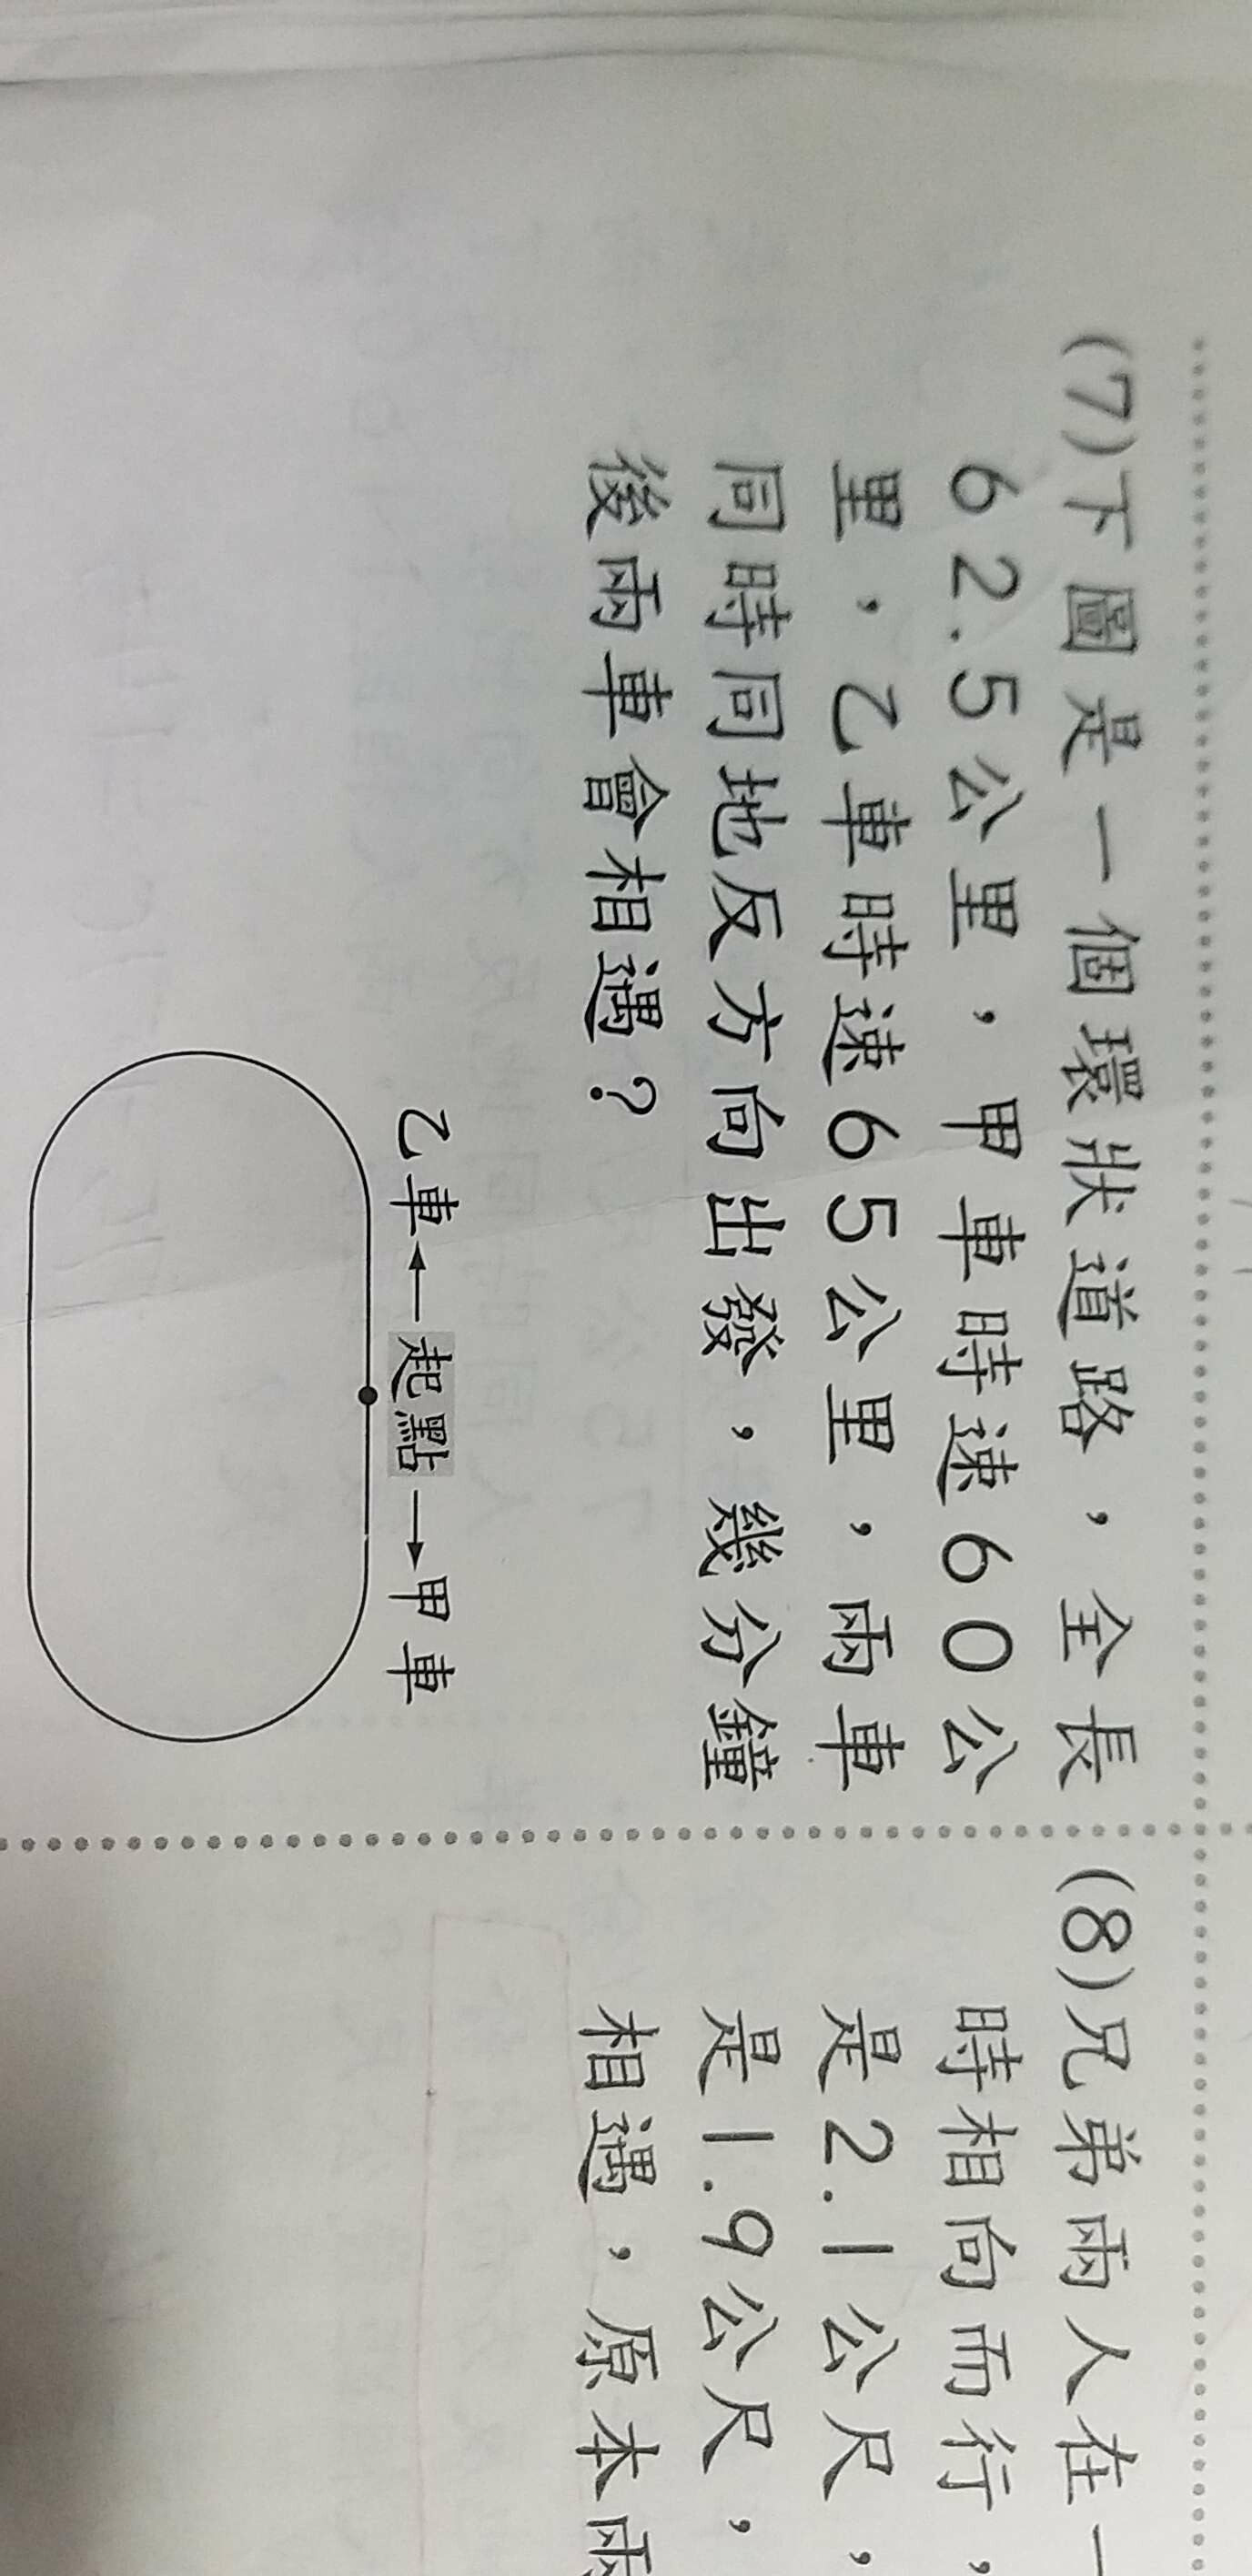 (7)下圖是一個環狀道路，全長
62.5公里，甲車時速60公
里，乙車時速65公里，兩車
同時同地反方向出發，幾分鐘
後兩車會相遇？
乙車←起點→甲車
(8)兄弟兩人在一
時相向而行，
是2.1公尺，
是1.9公尺，
相遇，原本兩